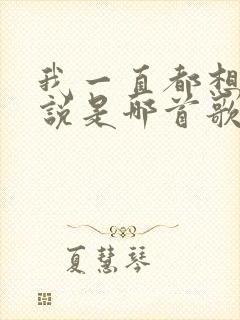 我一直都想
說是哪首歌
夏慧琴